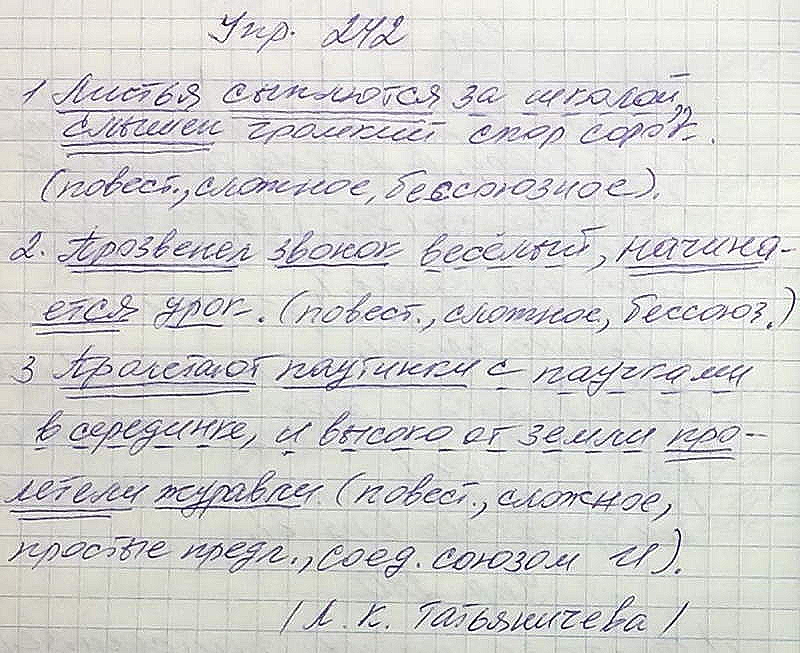 Упр. 242
1 Листья сыплются за школой,
слышен громкий спор сорок.
(повест., сложное, бессоюзное).
2. Прозвенел звонок весёлый, начина-
ется урок. (повест., сложное, бессоюз.)
3 Пролетают паутинки с паучками
в серединке, и высоко от земли про-
летели журавли (повест., сложное,
простые предл., соед. союзом И).
/Л. К. Татьяничева/